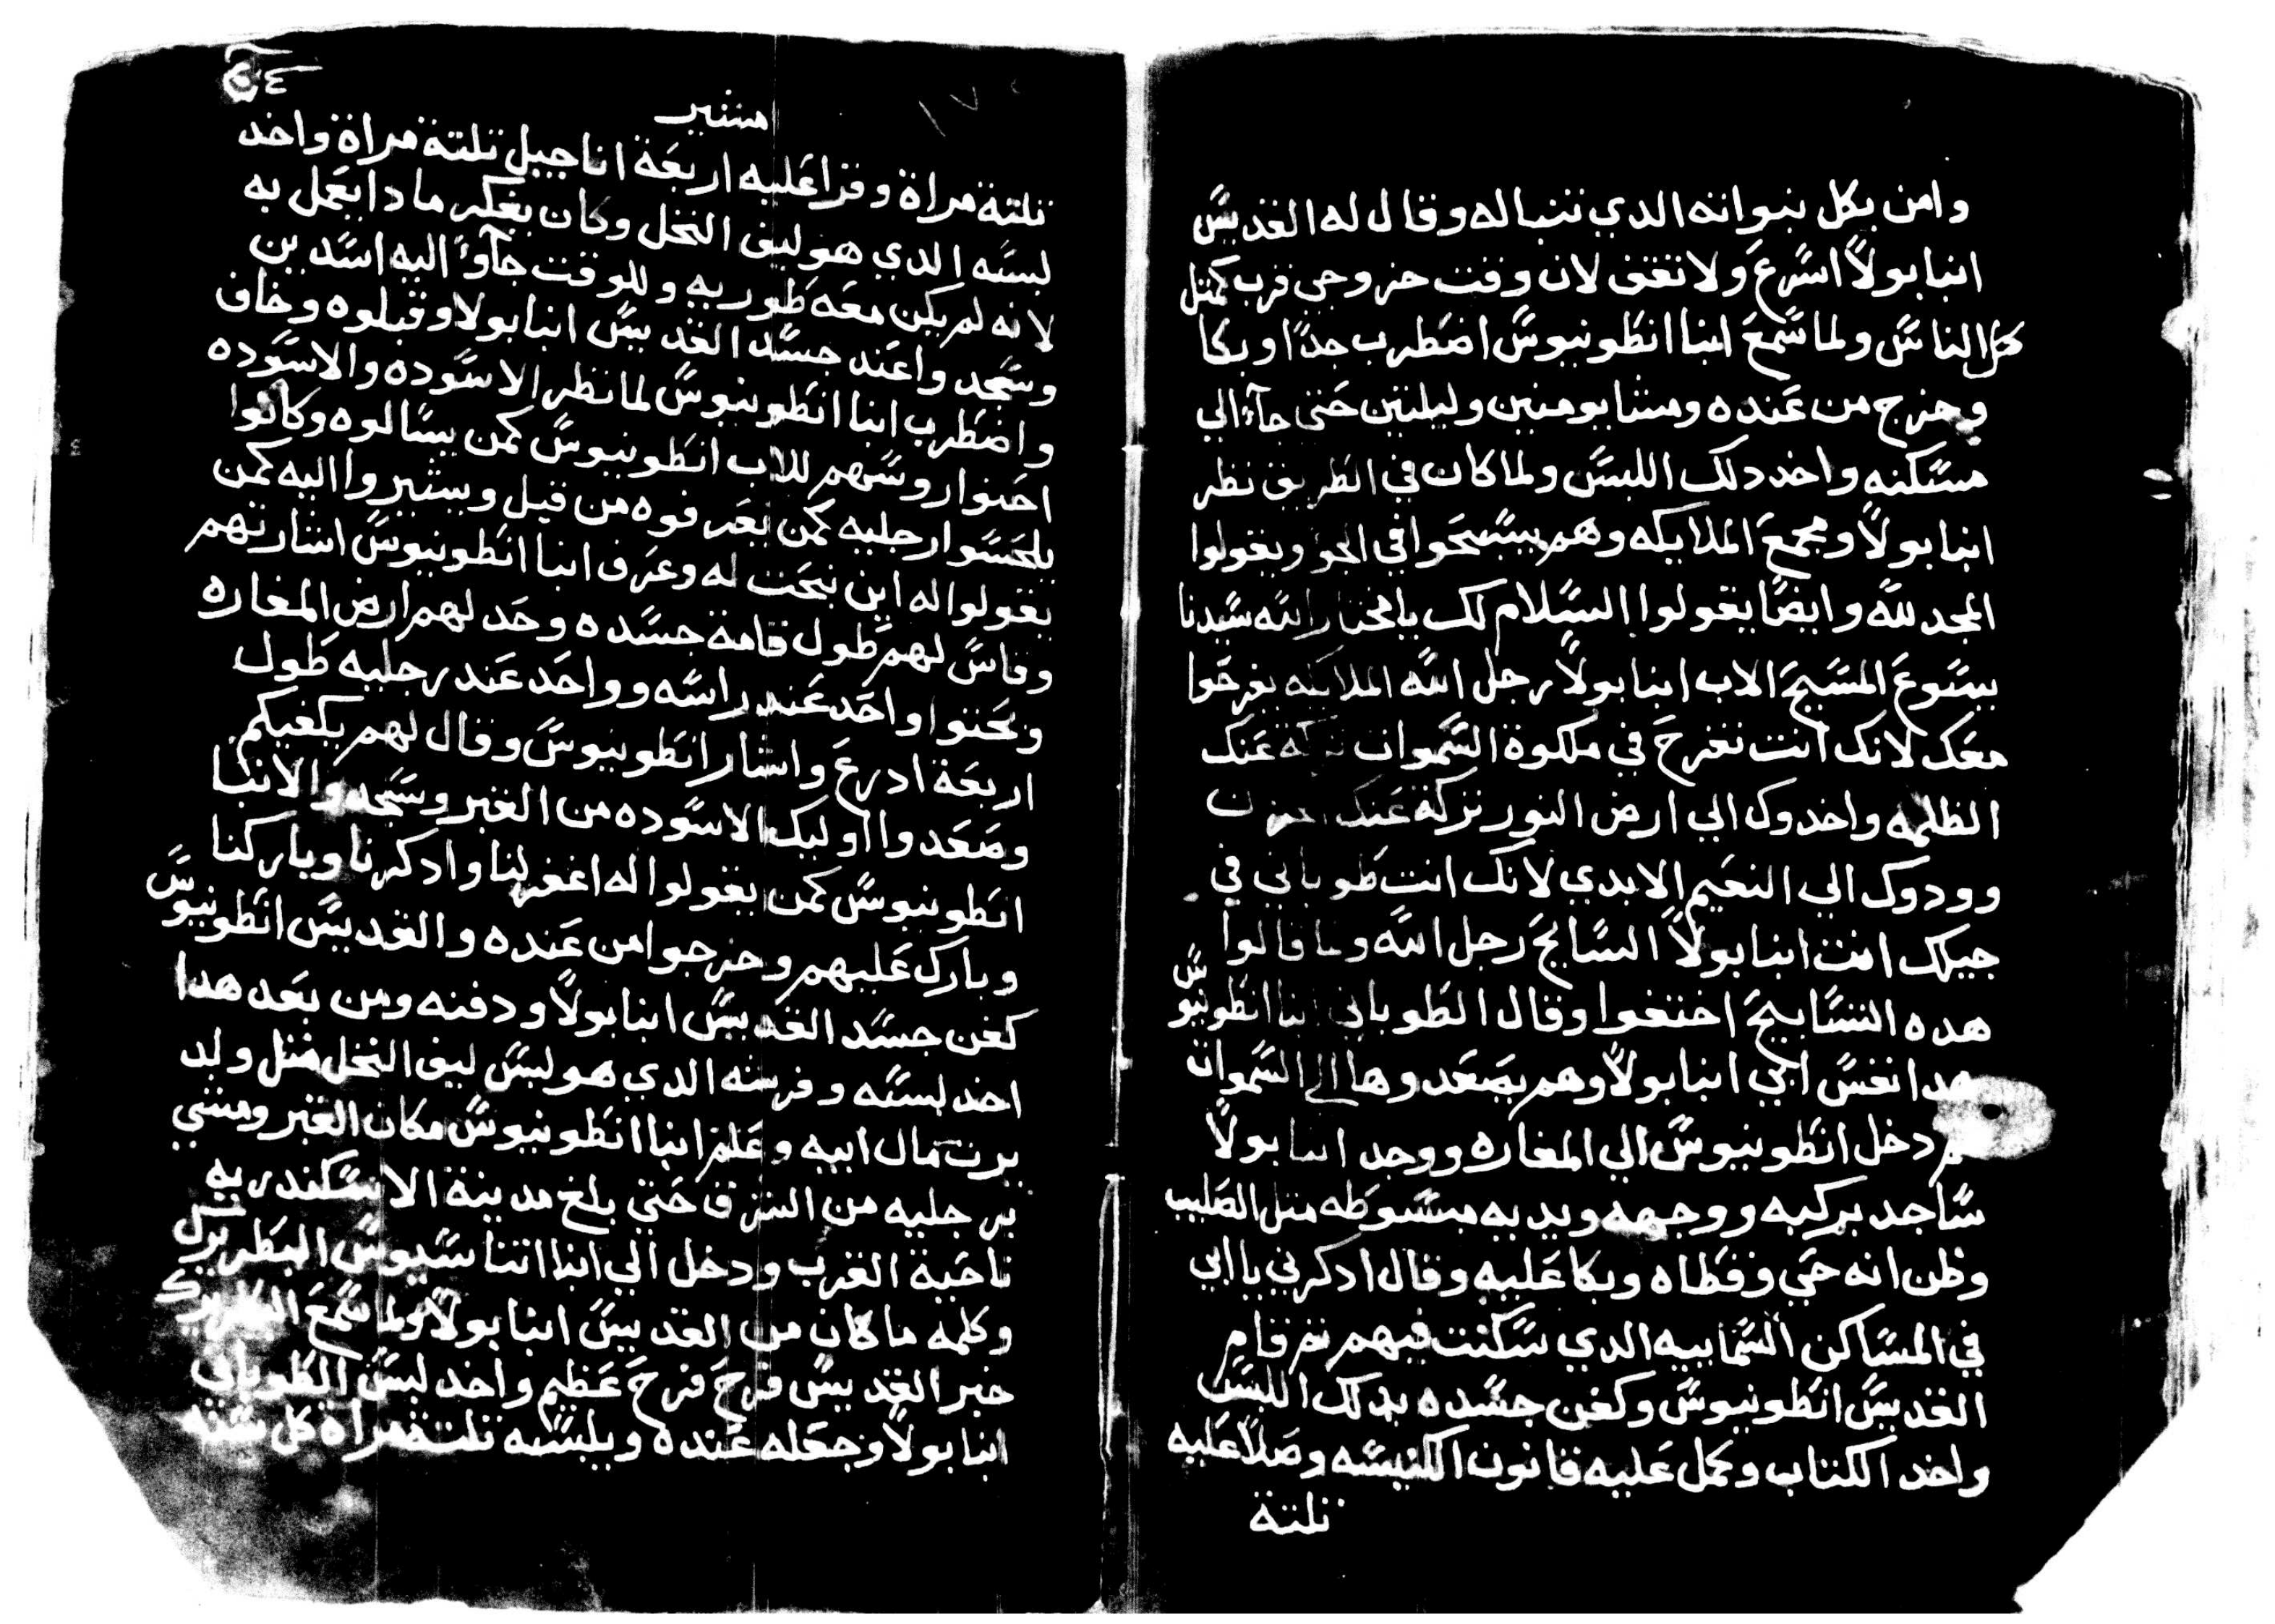 وامن بكل نبواته الدي تنبا له وقال له القديسّ
انبا بولاً اسّرع ولا تقف لان وقت خروجي قرب كمتل
كل الناسّ ولما سّمع انبا انطونيوسّ اضطرب جدًا وبكا
وخرج من عنده ومشا يومين وليلتين حتى جآء الي
مسّكنه واخد دلك اللبسّ ولما كان في الطريق نظر
انبا بولاً ومجمع الملايكه وهم يسّبحوا في الجو ويقولوا
المجد لله وايضًا يقولوا السّلام لك يا مختار الله سّيدنا
يسّوع المسّيح الاب انبا بولاً رجل الله الملايكه يفرحوا
معك لانك انت تفرح في ملكوة السّموات تركة عنك
الظلمه واخدوك الي ارض النور تركة عنك الحزن
وودوك الي النعيم الابدي لانك انت طوباني في
جيلك انت انبا بولاً السّايح رجل الله ولما قالوا
هده التسّابيح اختفوا وقال الطوباني انبا انطونيوسّ
هدا نفسّ ابي انبا بولاً وهم يصعدوها الي السّموات
تم دخل انطونيوسّ الي المغاره ووجد انبا بولاً
سّاجد بركبه ووجهه ويديه مبسّوطه متل الصليب
وظن انه حي وغطاه وبكا عليه وقال ادكرني يا ابي
في المسّاكن السّماييه الدي سّكنت فيهم تم قام
القديسّ انطونيوسّ وكفن جسّده بدلك اللبسّ
واخد الكتاب وكمل عليه قانون الكنيسّه وصلا عليه
تلتة
١٧٠
امشير
تلتة مراة وقرا عليه اربعة اناجيل تلتة مراة واخد
لبسّه الدي هو ليف النخل وكان يفكر مادا يعمل به
لانه لم يكن معه طوريه وللوقت جآوًا اليه اسّدين
وسّجدوا عند جسّد القديسّ انبا بولا وقبلوه وخاف
واضطرب انبا انطونيوسّ لما نظر الاسّوده والاسّوده
احنوا روسّهم للاب انطونيوسّ كمن يسّالوه وكانوا
يلحسّوا رجليه كمن يعرفوه من قبل ويشيروا اليه كمن
يقولوا له اين نبحت له وعرف انبا انطونيوسّ اشارتهم
وقاسّ لهم طول قامة جسّده وحد لهم ارض المغاره
وبحتوا واحد عند راسّه وواحد عند رجليه طول
اربعة ادرع واشار انطونيوسّ وقال لهم يكفيكم
وصعدوا اوليك الاسّوده من القبر وسّجدوا لانبا
انطونيوسّ كمن يقولوا له اغفر لنا وادكرنا وباركنا
وبارك عليهم وخرجوا من عنده والقديسّ انطونيوسّ
كفن جسّد القديسّ انبا بولاً ودفنه ومن بعد هدا
اخد لبسّه وفرسّه الدي هو لبسّ ليف النخل متل ولد
يرت مال ابيه وعلم انبا انطونيوسّ مكان القبر ومشي
برجليه من الشرق حتي بلغ مدينة الاسّكندريه
ناحية الغرب ودخل الي انبا اتناسّيوسّ البطريرك
وكلمه ما كان من القديسّ انبا بولاً ولما سّمع البطريرك
خبر القديسّ فرح فرح عظيم واخد لبسّ الطوباني
انبا بولاً وجعله عنده ويلبسّه تلتة مراة كل سّنه